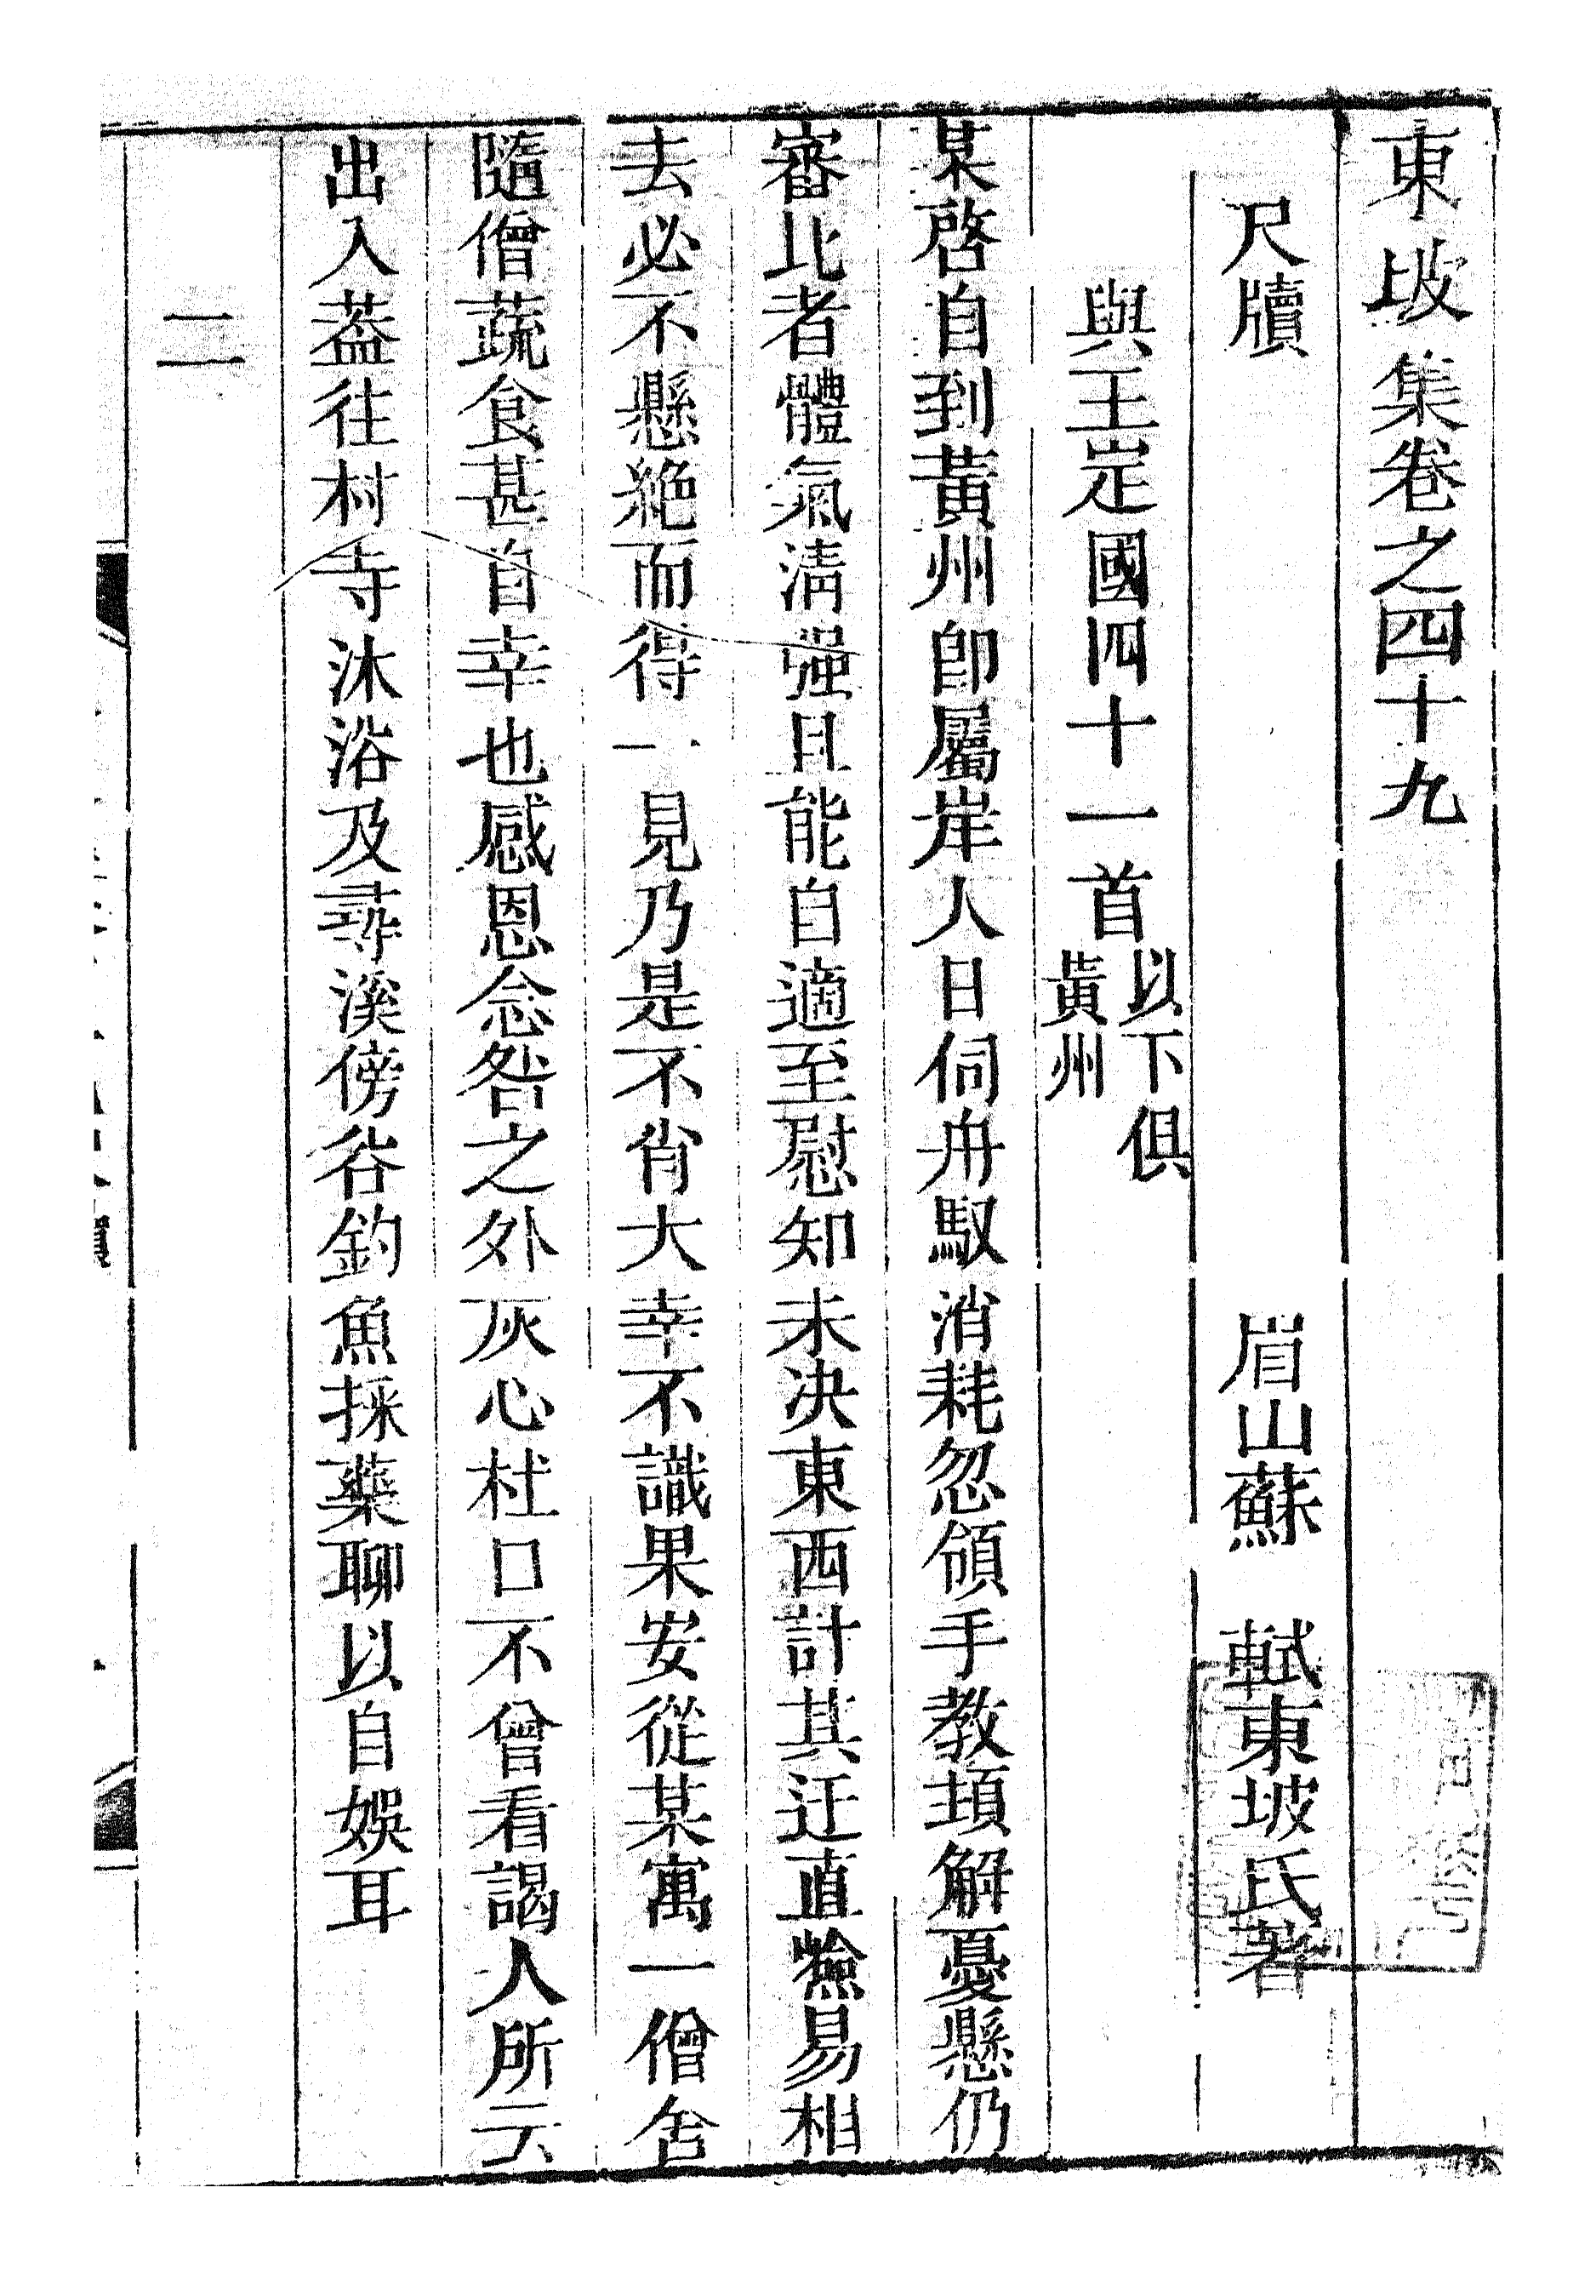 東坡集卷之四十九
尺牘　眉山蘇　軾東坡氏著
與王定國四十一首以下俱黃州
某啓自到黃州即屬岸人日伺舟馭消耗忽領手教頓解憂懸仍
審比者體氣淸强且能自適至慰知未决東西計其迂直險易相
去必不懸絶而得一見乃是不肖大幸不識果安從某寓一僧舍
隨僧蔬食甚自幸也感恩念咎之外灰心杜口不曾看謁人所云
出入葢往村寺沐浴及尋溪傍谷釣魚採藥聊以自娛耳
二